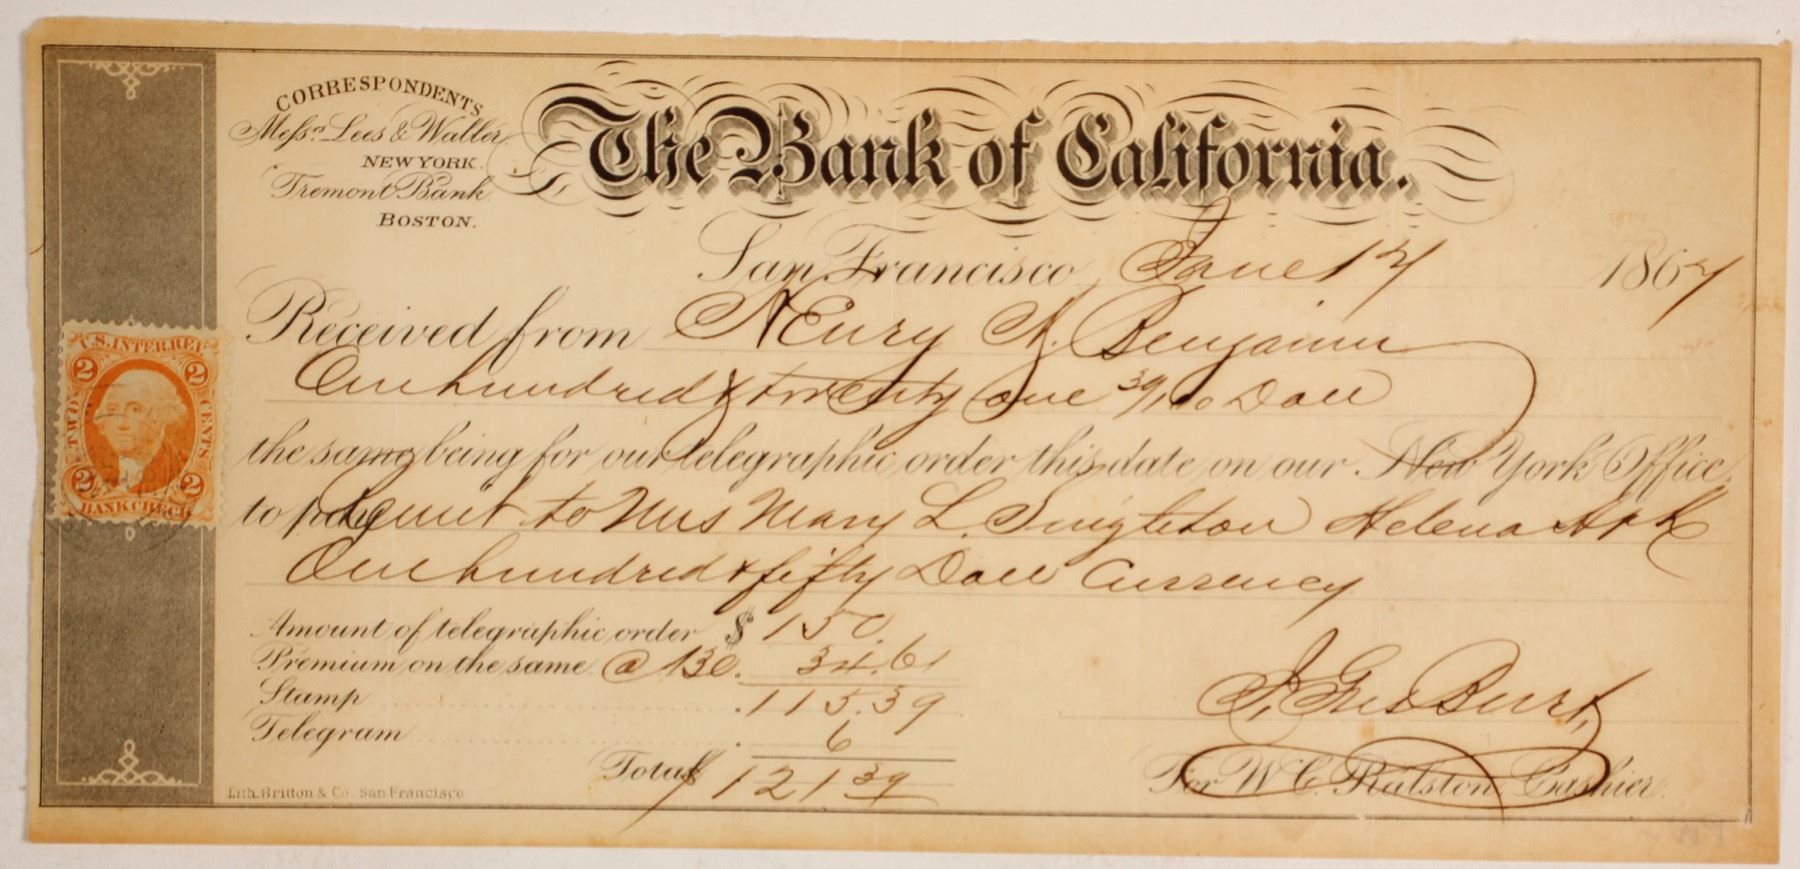 CORRESPONDENTS
Messrs. Lees & Waller,
NEW YORK.
Tremont Bank,
BOSTON.
The Bank of California.
San Francisco June 17 1867
Received from Henry A. Benjamin
One hundred & twenty one 39/100 Doll
the same being for our telegraphic order this date on our New York Office,
to pay remit to Mrs Mary L. Singleton Helena Ark
One hundred & fifty Doll Currency
Amount of telegraphic order $ 150.
Premium on the same @ 130. 34.61
Stamp 115.39
Telegram 6
Total $ 121 39
J. Geo Burt,
For W. C. Ralston, Cashier.
Lith. Britton & Co. San Francisco
U.S. INTER. REV.
2 2
TWO CENTS
2 2
BANK CHECK